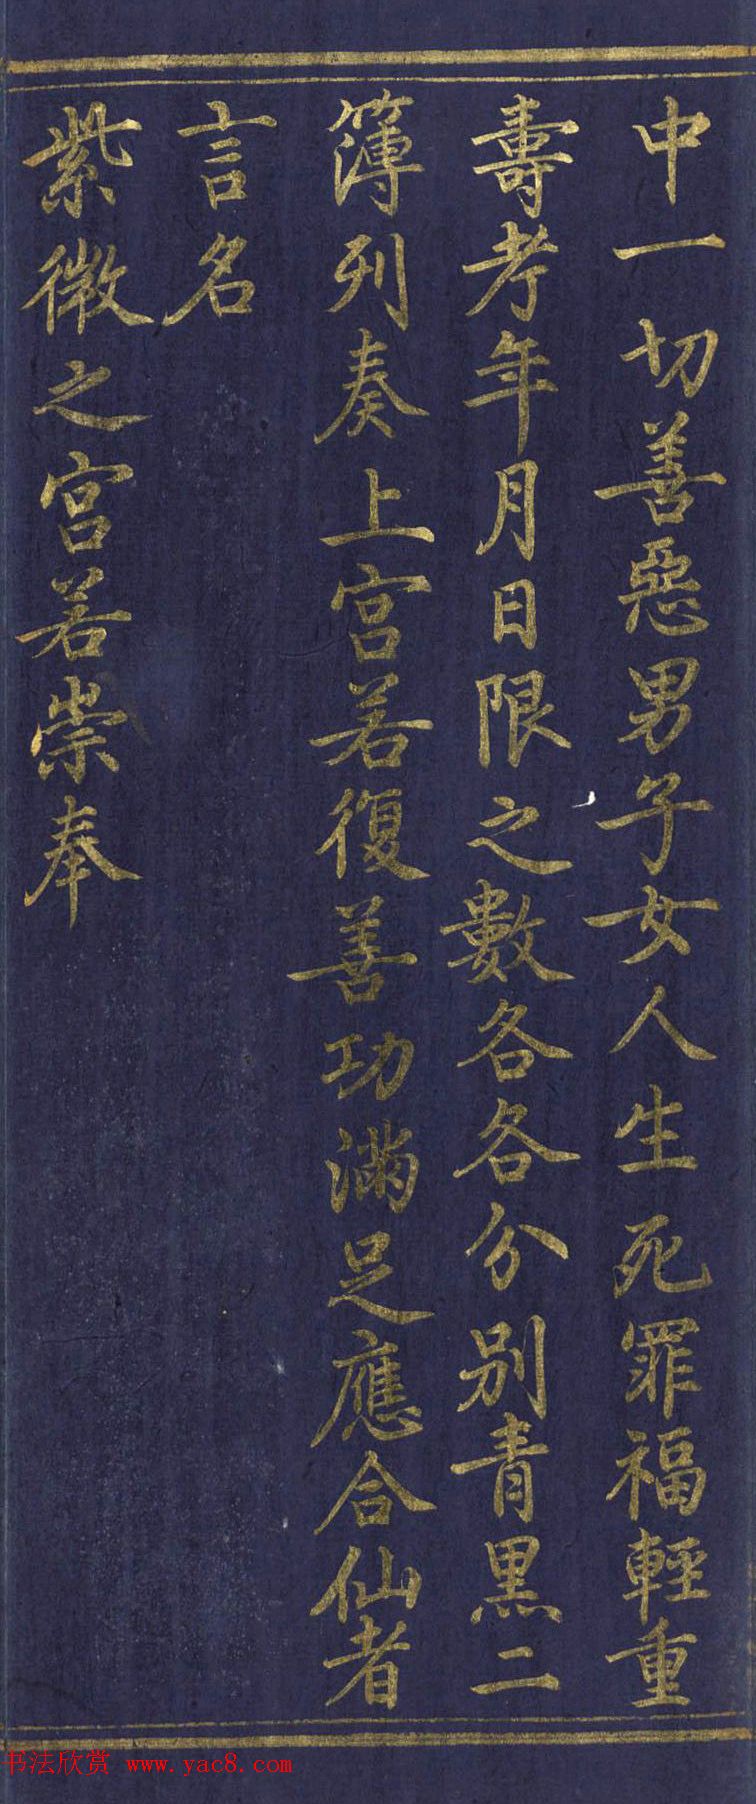 中一切善惡男子女人生死罪福輕重
壽考年月日限之數各各分別青黑二
簿列奏上宮若復善功滿足應合仙者
言名
紫微之宮若崇奉
书法欣赏 www.yac8.com